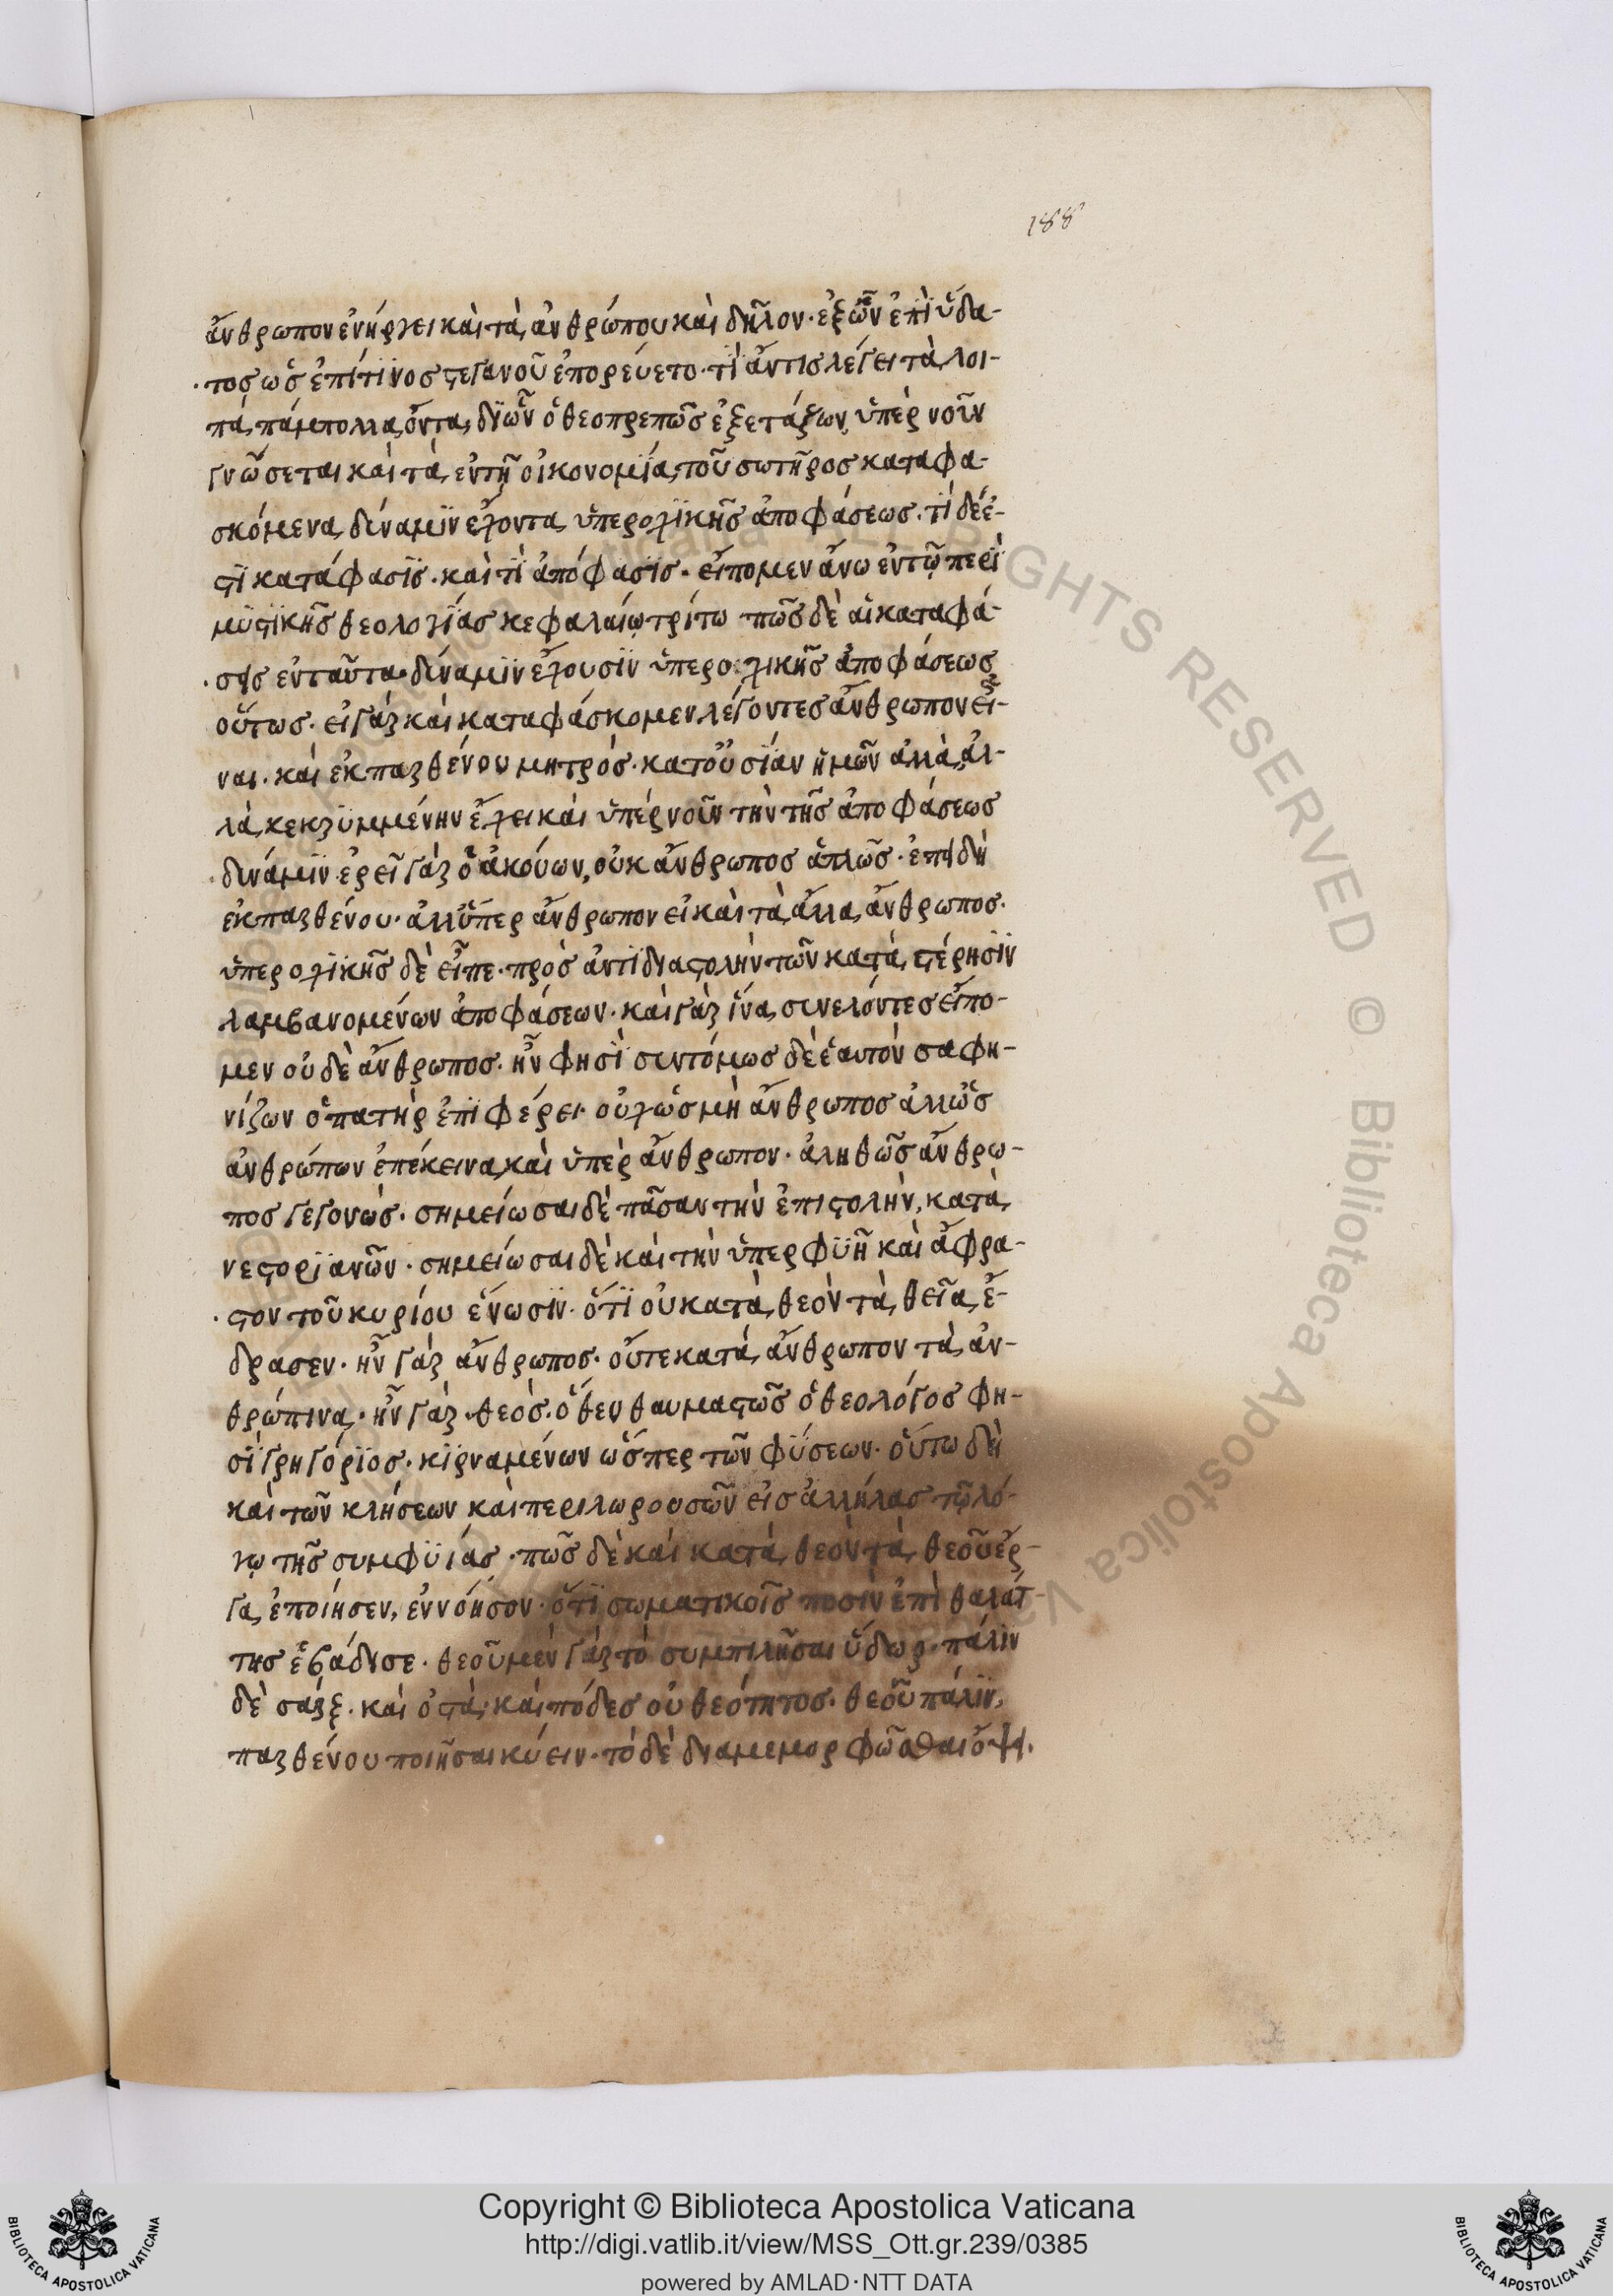 188
ἄνθρωπον ἐνήργει καὶ τὰ ἀνθρώπου καὶ δῆλον· ἐξ ὧν ἐπὶ ὕδα-
τος ὡς ἐπί τινος στεγανοῦ ἐπορεύετο· τί ἄν τις λέγει τὰ λοι-
πὰ πάμπολλα ὄντα, δι' ὧν ὁ θεοπρεπῶς ἐξετάζων, ὑπὲρ νοῦν
γνώσεται καὶ τὰ ἐν τῇ οἰκονομίᾳ τοῦ σωτῆρος καταφα-
σκόμενα δύναμιν ἔχοντα ὑπεροχικῆς ἀποφάσεως. τί δέ ἐ-
στι κατάφασις· καὶ τί ἀπόφασις· εἴπομεν ἄνω ἐν τῷ περὶ
μυστικῆς θεολογίας κεφαλαίῳ τρίτω πῶς δὲ αἱ καταφά-
σεις ἐνταῦτα δύναμιν ἔχουσιν ὑπεροχικῆς ἀποφάσεως
οὕτως· εἰ γὰρ καὶ καταφάσκομεν λέγοντες ἄνθρωπον εἶ-
ναι· καὶ ἐκ παρθένου μητρός· κατ' οὐσίαν ἡμῶν ἀλλὰ ἀλ-
λὰ κεκρυμμένην ἔχει καὶ ὑπὲρ νοῦν τὴν τῆς ἀποφάσεως
δύναμιν ἐρεῖ γὰρ ὁ ἀκούων, οὐκ ἄνθρωπος ἁπλῶς· ἐπειδὴ
ἐκ παρθένου· ἀλλ' ὑπὲρ ἄνθρωπον εἰ καὶ τὰ ἄλλα ἄνθρωπος·
ὑπεροχικῆς δὲ εἶπε· πρὸς ἀντιδιαστολὴν τῶν κατὰ στέρησιν
λαμβανομένων ἀποφάσεων· καὶ γὰρ ἵνα συνελόντες εἴπο-
μεν οὐδὲ ἄνθρωπος· ἦν φησὶ συντόμως δὲ ἑαυτὸν σαφη-
νίζων ὁ πατὴρ ἐπιφέρει· οὐχ ὡς μὴ ἄνθρωπος ἀλλ' ὡς
ἀνθρώπων ἐπέκεινα καὶ ὑπὲρ ἄνθρωπον· ἀληθῶς ἄνθρω-
πος γεγονώς· σημείωσαι δὲ πᾶσαν τὴν ἐπιστολὴν, κατὰ
νεστοριανῶν· σημείωσαι δὲ καὶ τὴν ὑπερφυῆ καὶ ἄφρα-
στον τοῦ κυρίου ἕνωσιν· ὅτι οὐ κατὰ θεὸν τὰ θεῖα ἔ-
δρασεν· ἦν γὰρ ἄνθρωπος· οὔτε κατὰ ἄνθρωπον τὰ ἀν-
θρώπινα· ἦν γὰρ θεός· ὅθεν θαυμαστῶς ὁ θεολόγος φη-
σὶ γρηγόριος· κιρναμένων ὥσπερ τῶν φύσεων· οὕτω δὴ
καὶ τῶν κλήσεων καὶ περιχωρουσῶν εἰς ἀλλήλας τῷ λό-
γῳ τῆς συμφυίας· πῶς δὲ καὶ κατὰ θεὸν τὰ θεοῦ ἔρ-
γα ἐποίησεν, ἐννόησον· ὅτι σωματικοῖς ποσὶν ἐπὶ θαλάτ-
της ἐβάδισε· θεοῦ μὲν γὰρ τὸ συμπιλῆσαι ὕδωρ· πάλιν
δὲ σάρξ· καὶ ὀστᾶ· καὶ πόδες οὐ θεότητος· θεοῦ πάλιν,
παρθένου ποιῆσαι κύειν· τὸ δὲ διαμεμορφῶσθαι ὄψει·
Copyright © Biblioteca Apostolica Vaticana
http://digi.vatlib.it/view/MSS_Ott.gr.239/0385
powered by AMLAD·NTT DATA
BIBLIOTECA APOSTOLICA VATICANA
BIBLIOTECA APOSTOLICA VATICANA